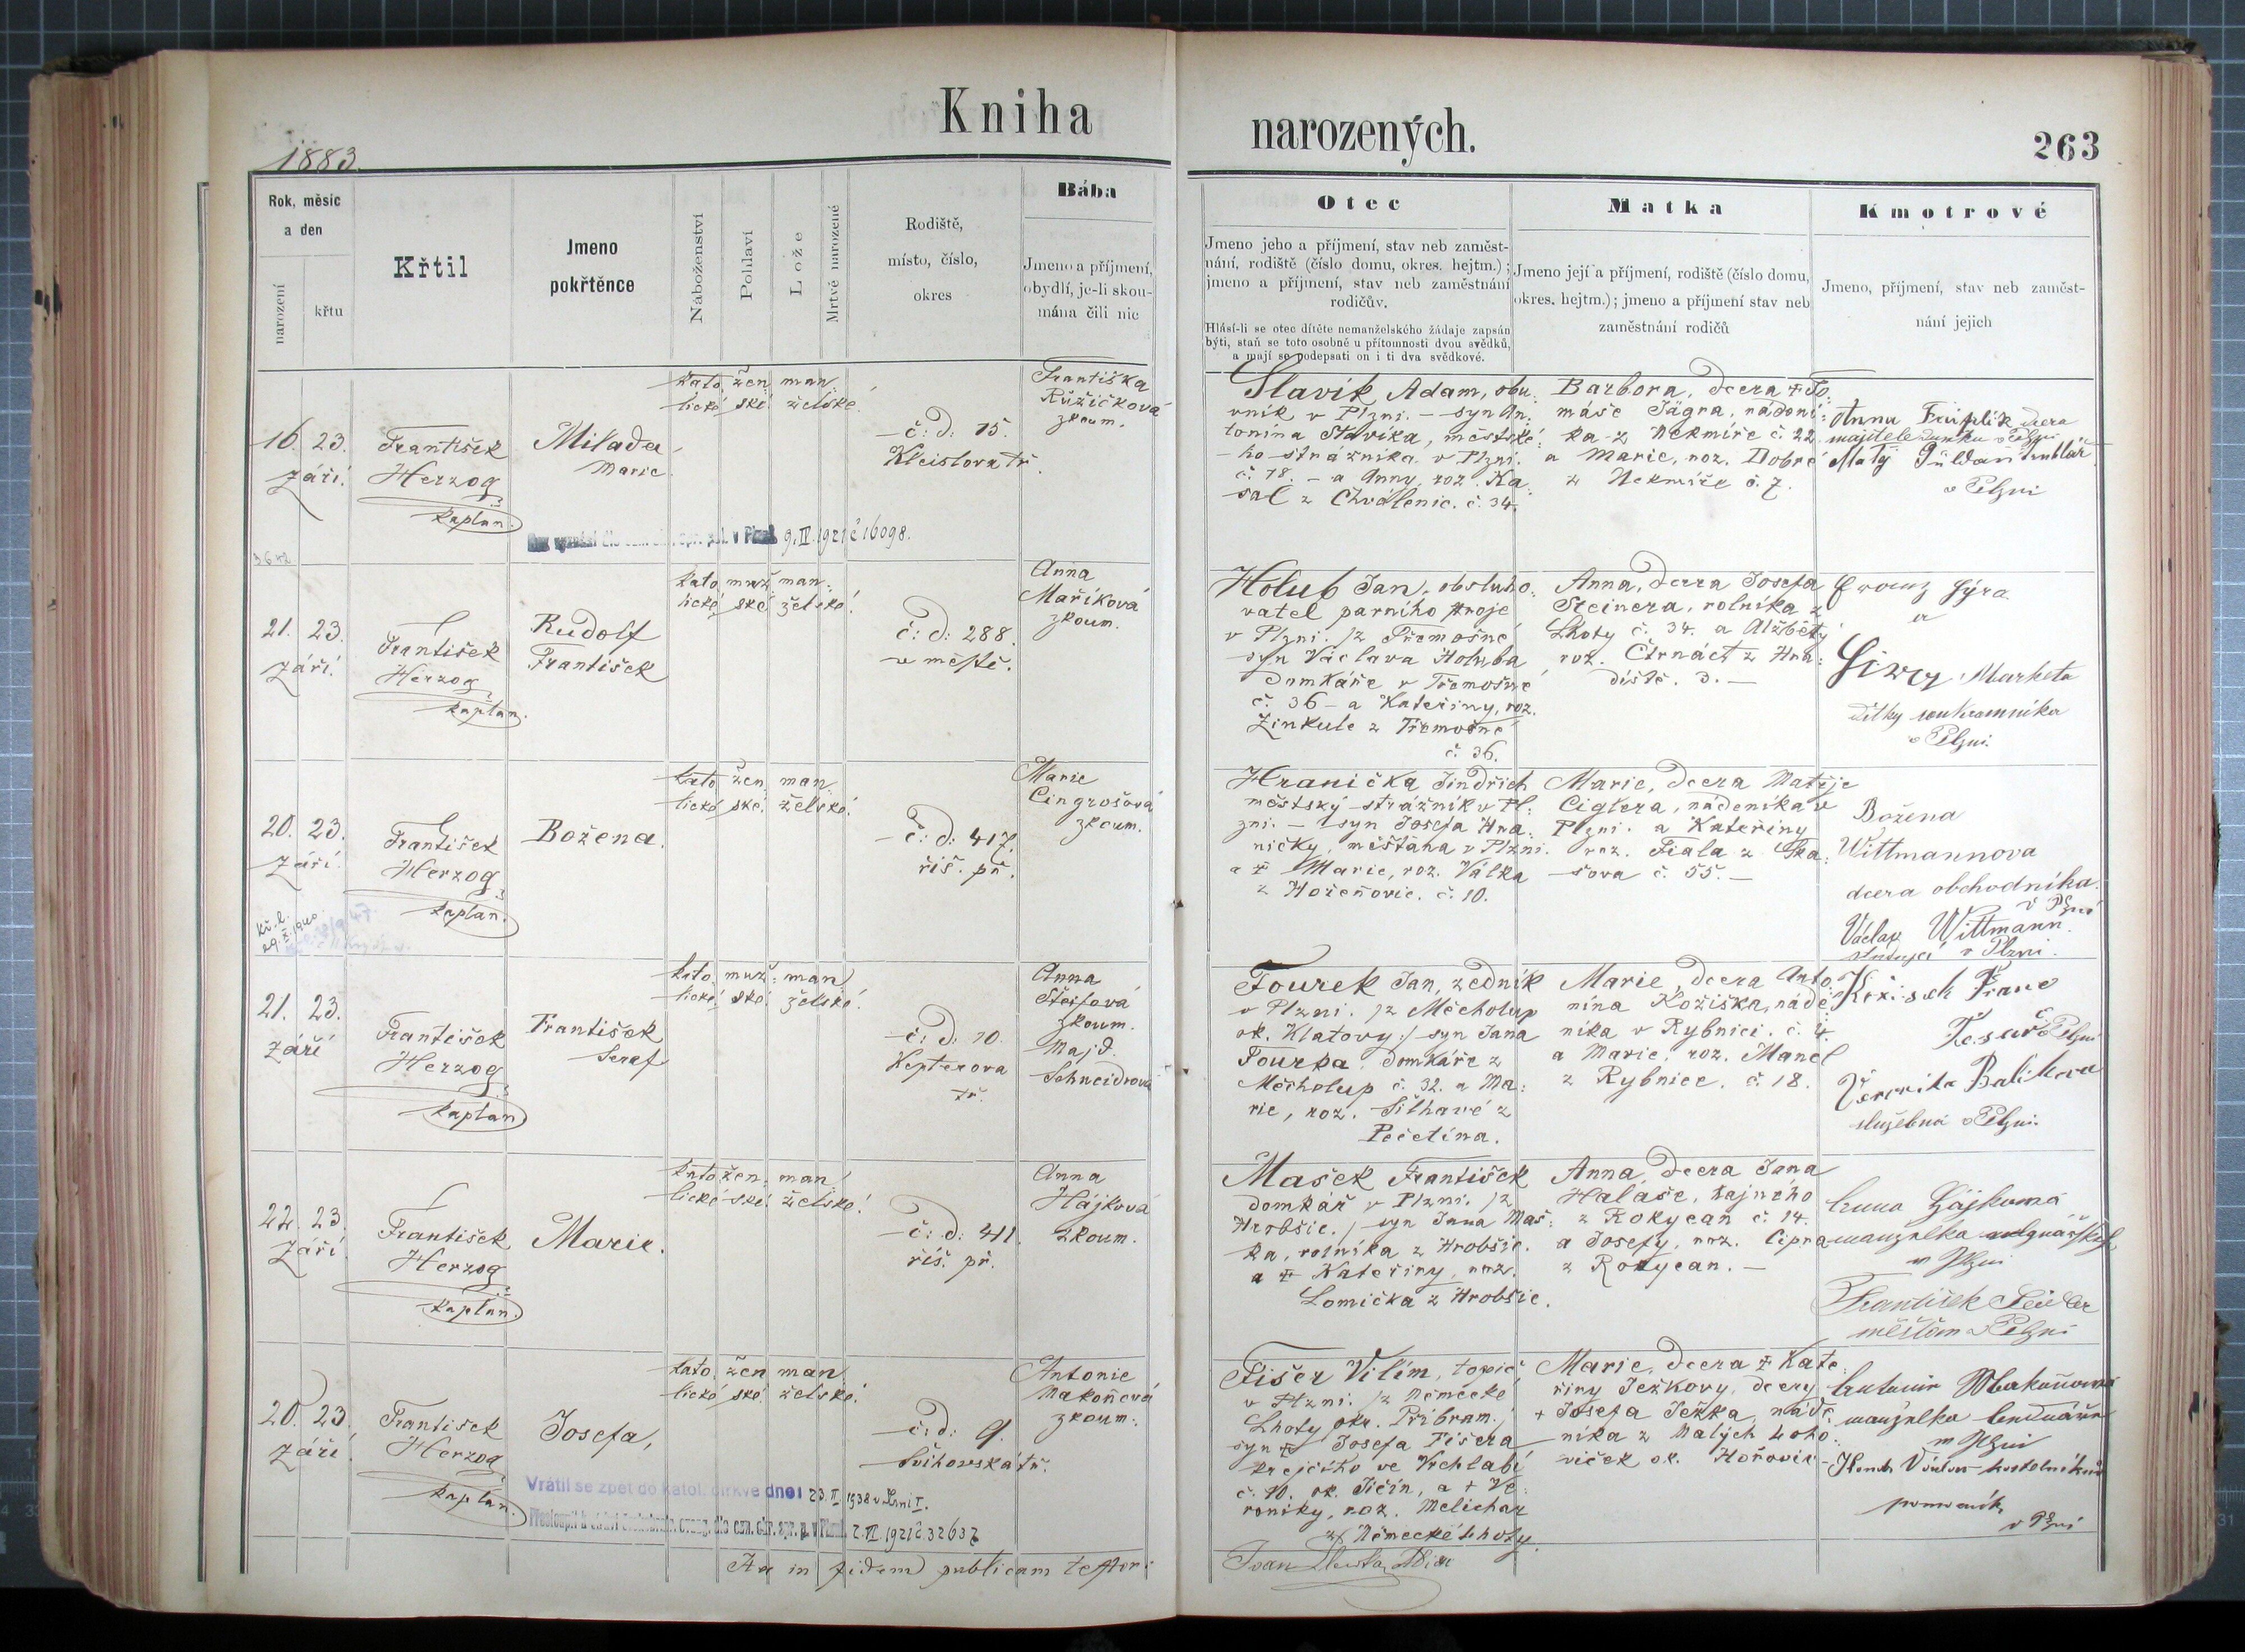 Kniha
narozených.
263
1883.
Rok, měsíc
a den
narození
křtu
Křtil
Jmeno
pokřtěnce
Náboženství
Pohlaví
Lože
Mrtvě narozené
Rodiště,
místo, číslo,
okres
Bába
Jmeno a příjmení,
obydlí, je-li skou-
mána čili nic
Otec
Jmeno jeho a příjmení, stav neb zaměst-
nání, rodiště (číslo domu, okres. hejtm.);
jmeno a příjmení, stav neb zaměstnání
rodičův.
Hlásí-li se otec dítěte nemanželského žádaje zapsán
býti, staň se toto osobně u přítomnosti dvou svědků,
a mají se podepsati on i ti dva svědkové.
Matka
Jmeno její a příjmení, rodiště (číslo domu,
okres. hejtm.); jmeno a příjmení stav neb
zaměstnání rodičů
Kmotrové
Jmeno, příjmení, stav neb zaměst-
nání jejich
16. 23.
září.
František
Herzog
kaplan.
Milada
Marie
kato žen man
lické ské želské.
č: d: 15.
Kleislova tř.
Františka
Růžičková
zkoum.
Slavík Adam, obu-
vník v Plzni. – syn An-
tonína Slavíka, městské-
ho strážníka v Plzni.
č. 18. – a Anny, roz. Ka-
sal z Chválenic. č. 34.
Barbora, dcera † To-
máše Jägra, nádení-
ka z Nekmíře č. 22
a Marie, roz. Dobré
z Nekmíře č. 7.
Anna
dcera
v Plzni
v Plzni 9. IV. 1921 č 16098.
21. 23.
září.
František
Herzog
kaplan.
Rudolf
František
kato muž man:
lické ské želské.
č: d: 288.
v městě.
Anna
Maříková
zkoum.
Holub Jan, obsluho-
vatel parního stroje
v Plzni. /z Třemošné
syn Václava Holuba
domkáře v Třemošné
č. 36 – a Kateřiny, roz.
Zinkule z Třemošné
č. 36.
Anna, dcera Josefa
Steinera, rolníka z
Lhoty č. 34. a Alžběty
roz. Čtrnáct z Hra-
diště. 3. –
Franz Sýra
a
Markéta
dítky soukromníka
v Plzni.
20. 23.
září.
František
Herzog
kaplan.
Božena.
kato žen man
lické ské. želské.
č: d: 417.
říš. př.
Marie
Cingrošová
zkoum.
Hranička Jindřich
městský strážník v Pl-
zni. – syn Josefa Hra-
ničky, měšťana v Plzni.
a † Marie, roz. Válka
z Hořeňovic. č. 10.
Marie, dcera Matěje
Ciglera, nádeníka v
Plzni. a Kateřiny
roz. Fiala z Tka-
sova č. 55. –
Božena
Wittmannova
dcera obchodníka.
v Plzni
Václav Wittmann.
studující v Plzni.
kř. l.
29. X. 1940
21. 23.
září
František
Herzog
kaplan
František
Seraf
kato muž: man
lické ské želské.
č: d: 10.
Kopterova
tř.
Anna
zkoum.
Majd.
Schneidrová
Fourek Jan, zedník
v Plzni. /z Měcholup
ok. Klatovy:/ syn Jana
Fourka, domkáře z
Měcholup č. 32. a Ma-
rie, roz. Šilhavé z
Pečetína.
Marie, dcera Anto-
nína Kožíška, náde-
níka v Rybnici. č. 4.
a Marie, roz. Manel
z Rybnice. č. 18.
Franc
Tesař v Plzni
Veronika Balikova
služebná v Plzni.
22. 23.
září
František
Herzog
kaplan
Marie.
kato žen: man
lické ské. želské.
č: d: 411.
říš. př.
Anna
Hájková
zkoum.
Mašek František
domkář v Plzni. /z
Hrobšic. / syn Jana Maš-
ka, rolníka z Hrobšic.
a † Kateřiny, roz.
Lomička z Hrobšic.
Anna, dcera Jana
Halaše, hajného
z Rokycan č. 14.
a Josefy, roz. Cipra
z Rokycan. –
Anna Hájková
manželka
v Plzni
František
měšťan v Plzni
20. 23.
září
František
Herzog
kaplan.
Josefa,
kato žen man
lické ské. želské.
č. d: 9.
Švihovská tř.
Antonie
Makoňová
zkoum.
Fišer Vilím, topič
v Plzni. /z Německé
Lhoty okr. Příbram. /
syn † Josefa Fišera
krejčího ve Vrchlabí
č. 10. ok. Jičín, a † Ve-
roniky, roz. Melichar
z Německé Lhoty.
Marie, dcera † Kate-
řiny Ježkovy, dcery
† Josefa Ježka, náde-
níka z Malých Loho-
viček ok. Hořovic –
Antonie Makoňová
manželka
v Plzni
v Plzni
Vrátil se zpět do katol. církve dne 23. II. 1938 v Plzni I.
2. VI. 1921 č 32637
in fidem publicam testor: